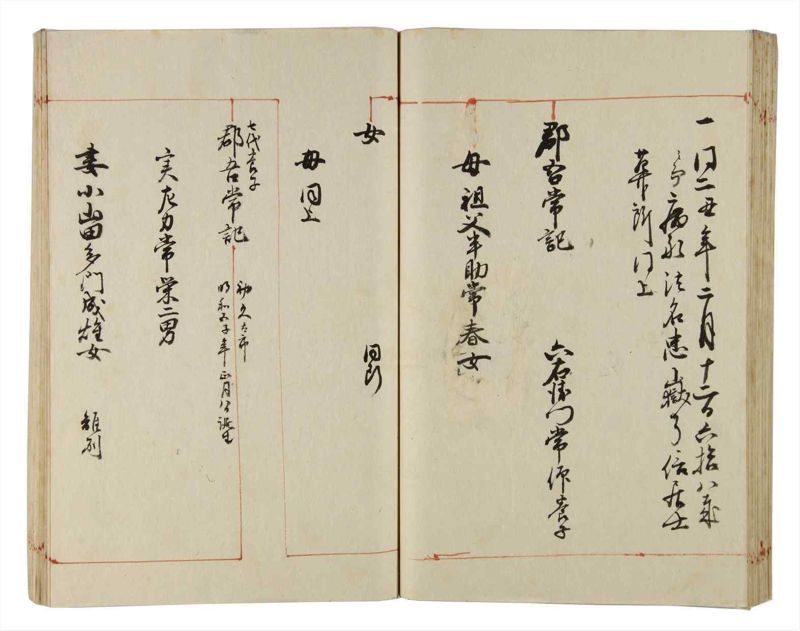 一同二丑年二月十二日六拾八歳
ニ而病死法名忠嶽了信居士
葬所同上
郡吾常記
六右衛門常伄養子
母祖父半助常春女
女
同断
母同上
七代養子
郡吾常記
初久太郎
明和五子年正月八日誕生
実左力常栄二男
妻小山田多門成雄女
離別